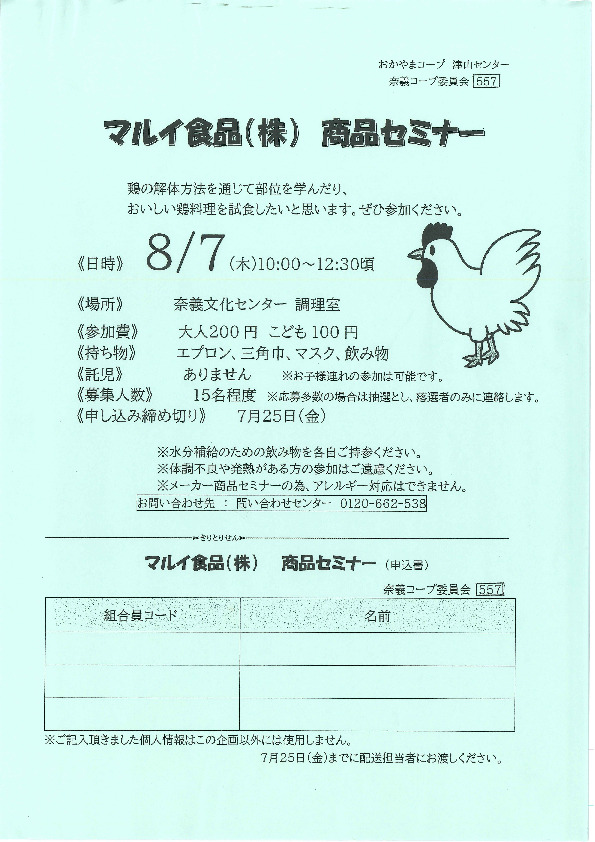 おかやまコープ 津山センター
奈義コープ委員会 557
マルイ食品(株) 商品セミナー
鶏の解体方法を通じて部位を学んだり、
おいしい鶏料理を試食したいと思います。ぜひ参加ください。
《日時》 8/7(木)10:00～12:30頃
《場所》 奈義文化センター 調理室
《参加費》 大人200円 こども100円
《持ち物》 エプロン、三角巾、マスク、飲み物
《託児》 ありません ※お子様連れの参加は可能です。
《募集人数》 15名程度 ※応募多数の場合は抽選とし、落選者のみに連絡します。
《申し込み締め切り》 7月25日(金)
※水分補給のための飲み物を各自ご持参ください。
※体調不良や発熱がある方の参加はご遠慮ください。
※メーカー商品セミナーの為、アレルギー対応はできません。
お問い合わせ先 : 問い合わせセンター 0120-662-538
きりとりせん
マルイ食品(株) 商品セミナー (申込書)
奈義コープ委員会 557
組合員コード 名前
※ご記入頂きました個人情報はこの企画以外には使用しません。
7月25日(金)までに配送担当者にお渡しください。